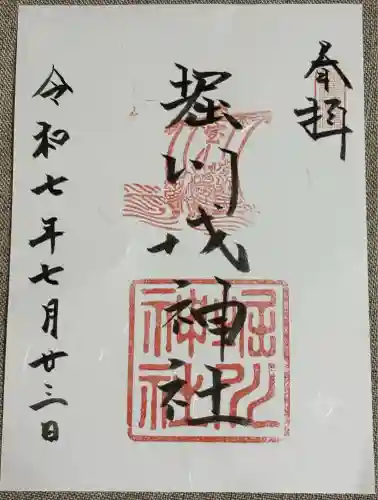 奉拝
堀川戎神社
令和七年七月廿三日
堀川
神社